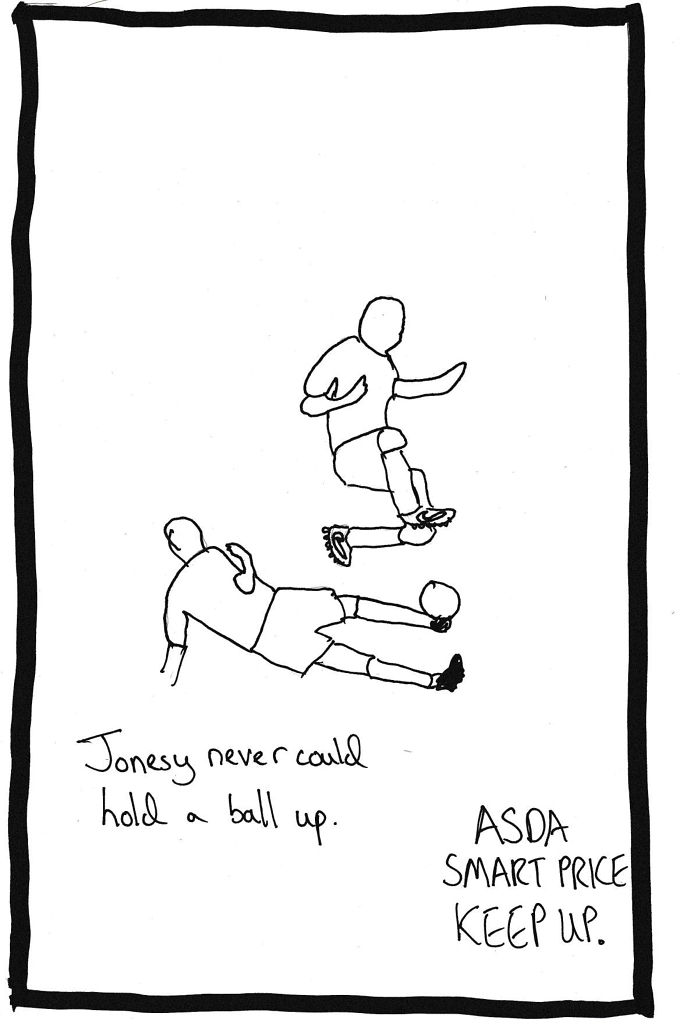 Jonesy never could
hold a ball up.
ASDA
SMART PRICE
KEEP UP.